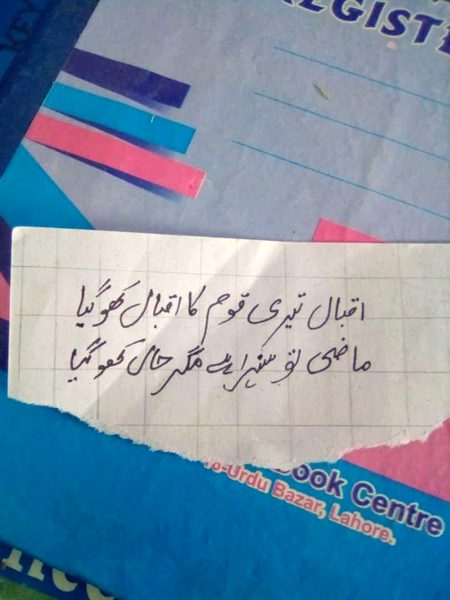 KEY
REGISTE
اقبال تیری قوم کا اقبال کھو گیا
ماضی تو سنہرا ہے مگر حال کھو گیا
Book Centre
-Urdu Bazar, Lahore.